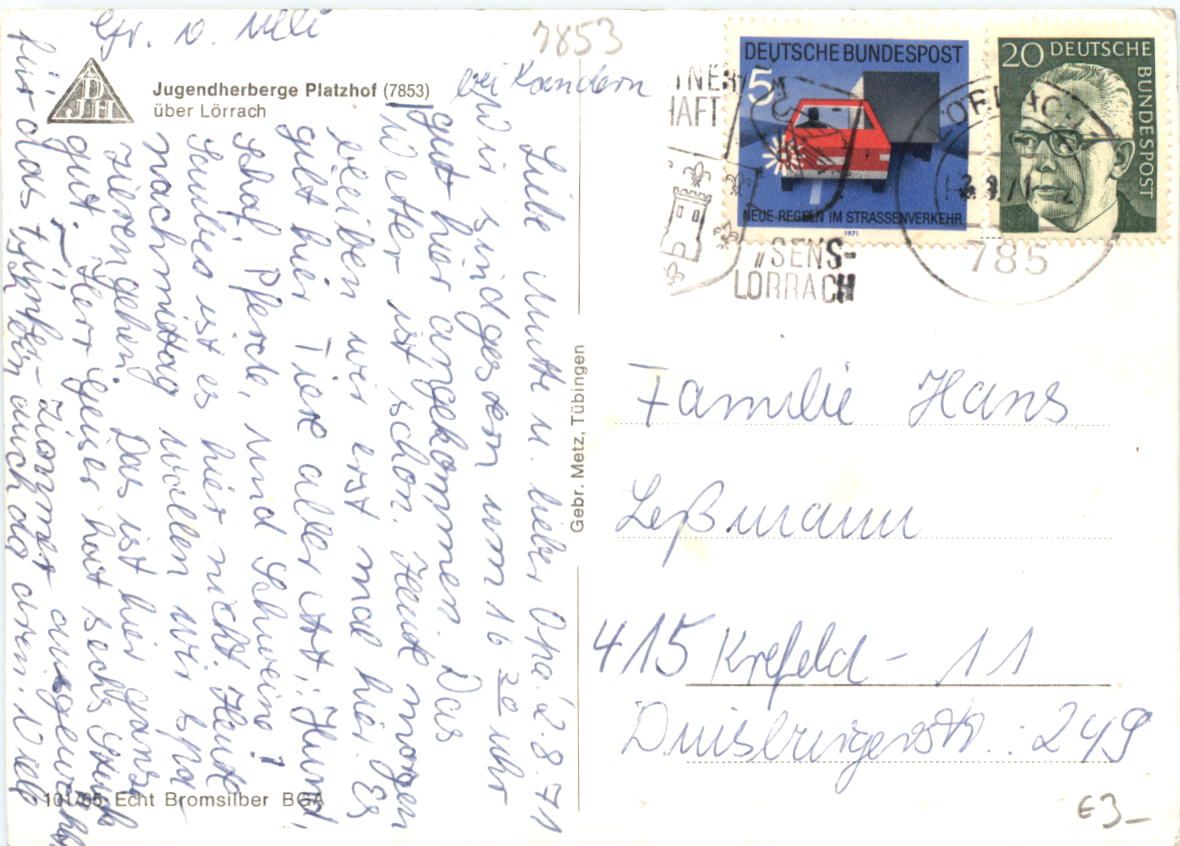 Gr. v. Uli
7853
Jugendherberge Platzhof (7853)
über Lörrach
bei Kandern
DJH
Liebe Mutti u. lieber Opa! 2.8.71
Wir sind gestern um 16 20 Uhr
gut hier angekommen. Das
Wetter ist schön. Heute morgen
bleiben wir erst mal hier. Es
gibt hier Tiere aller Art: Hund,
Schaf, Pferde, und Schweine!
Sauber ist es hier nicht. Heute
nachmittag wollen wir spa
zierengehen. Das ist hier ganz
gut. Herr hat sechs Stück
für das Fünfer-Zimmer ausgewählt
auch da drin. Viele
101/65 Echt Bromsilber BGA
Gebr. Metz, Tübingen
DEUTSCHE BUNDESPOST
5
NEUE REGELN IM STRASSENVERKEHR
1971
20 DEUTSCHE
BUNDESPOST
TNER
HAFT
SENS-
LÖRRACH
785
Familie Hans
Leßmann
415 Krefeld - 11
Duisburgerstr.: 249
€3,-